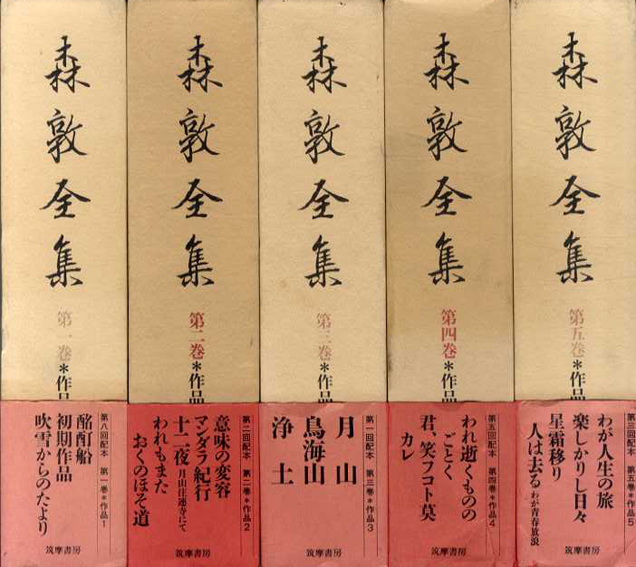 森敦全集
第一巻＊作品
第八回配本 第一巻＊作品1
酩酊船
初期作品
吹雪からのたより
筑摩書房
森敦全集
第二巻＊作品
第二回配本 第二巻＊作品2
意味の変容
マンダラ紀行
十二夜 月山注連寺にて
われもまた
おくのほそ道
筑摩書房
森敦全集
第三巻＊作品
第一回配本 第三巻＊作品3
月山
鳥海山
浄土
筑摩書房
森敦全集
第四巻＊作品
第五回配本 第四巻＊作品4
われ逝くものの
ごとく
君、笑フコト莫
カレ
筑摩書房
森敦全集
第五巻＊作品
第三回配本 第五巻＊作品5
わが人生の旅
楽しかりし日々
星霜移り
人は去る わが青春放浪
筑摩書房